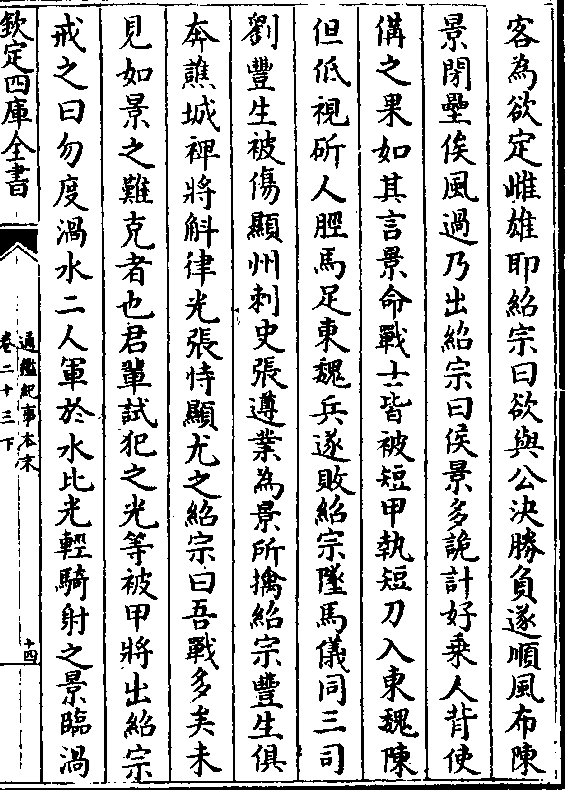 客為欲定雌雄耶紹宗曰欲與公決勝負遂順風布陳
景閉壘俟風過乃出紹宗曰侯景多詭計好乗人背使
備之果如其言景命戰士皆被短甲執短刀入東魏陳
但低視斫人脛馬足東魏兵遂敗紹宗墜馬儀同三司
劉豐生被傷顯州刺史張遵業為景所擒紹宗豐生俱
奔譙城裨將斛律光張恃顯尤之紹宗曰吾戰多矣未
見如景之難克者也君輩試犯之光等被甲將出紹宗
戒之曰勿度渦水二人軍於水北光輕騎射之景臨渦
欽定四庫全書
通鑑紀事本末
卷二十三下
十四